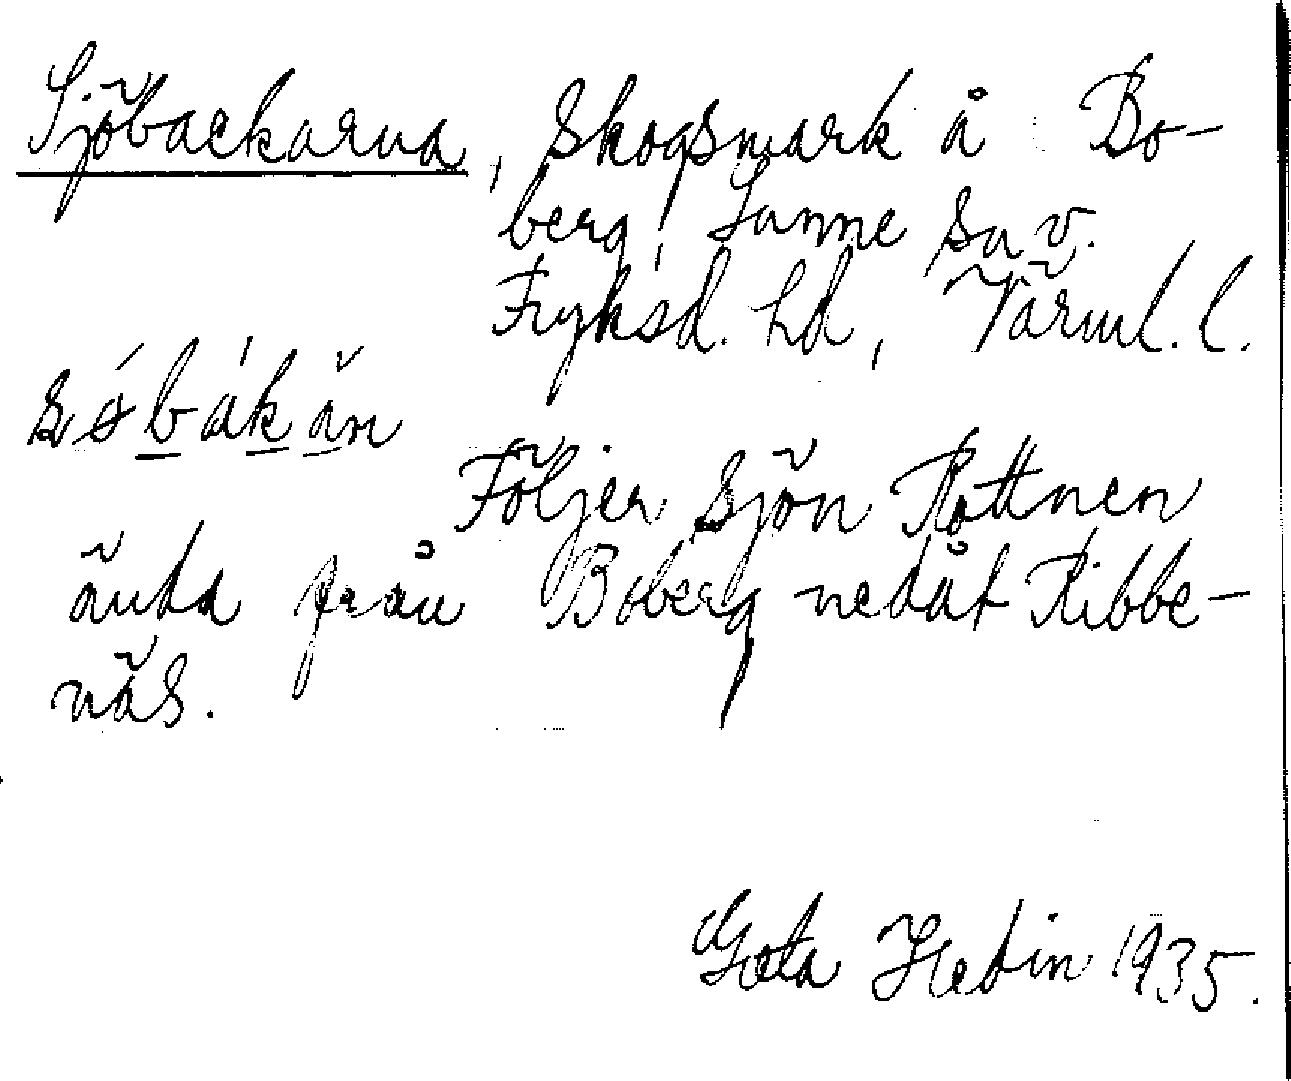 Sjöbackarna, Skogsmark å Bo-
berg, Sunne sn v.
Fryksd. hd, Värml. l.
søbakän
Följer sjön Rottnen
ända från Boberg nedåt Ribbe-
näs.
Greta Hedin 1935.